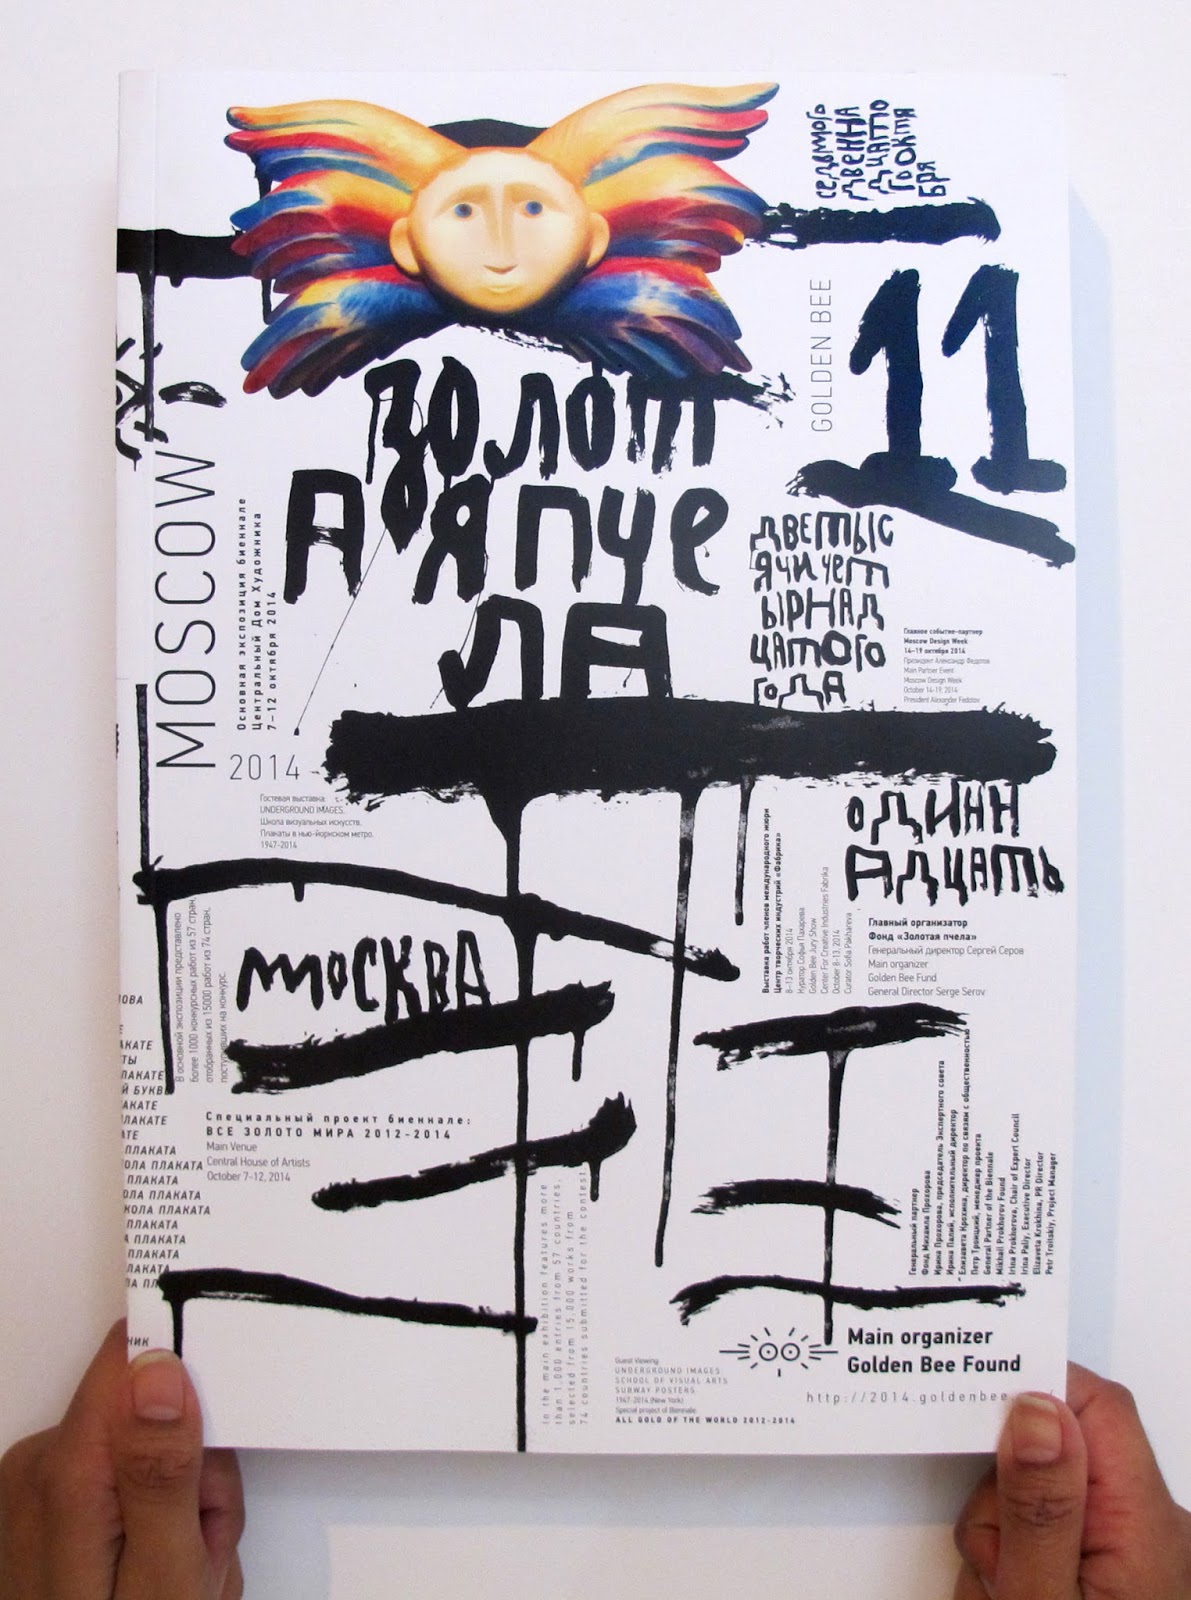 седьмого
двенна
дцато
гооктя
бря
GOLDEN BEE
11
золот
аяпче
ла
MOSCOW
2014
Основная экспозиция биеннале
Центральный Дом Художника
7–12 октября 2014
дветыс
ячичет
ырнад
цатого
года
Главное событие-партнер
Moscow Design Week
14–19 октября 2014
Президент Александр Федотов
Main Partner Event
Moscow Design Week
October 14-19, 2014
President Alexander Fedotov
Гостевая выставка:
UNDERGROUND IMAGES.
Школа визуальных искусств.
Плакаты в нью-йоркском метро.
1947-2014
одинн
адцать
Выставка работ членов международного жюри
Центр творческих индустрий «Фабрика»
8–13 октября 2014
Куратор Софья Пахарева
Golden Bee Jury Show
Center For Creative Industries Fabrika
October 8-13, 2014
Curator Sofia Pakhareva
Главный организатор
Фонд «Золотая пчела»
Генеральный директор Сергей Серов
Main organizer
Golden Bee Fund
General Director Serge Serov
москва
В основной экспозиции представлено
более 1000 конкурсных работ из 57 стран,
отобранных из 15000 работ из 74 стран,
поступивших на конкурс.
ОВА
АКАТЕ
ТЫ
ЛАКАТЕ
Й БУКВЫ
АКАТЕ
ЛАКАТЕ
АТЕ
ПЛАКАТА
ОЛА ПЛАКАТА
ПЛАКАТА
ОЛА ПЛАКАТА
КОЛА ПЛАКАТА
ПЛАКАТА
А ПЛАКАТА
ПЛАКАТА
ЛА ПЛ
НИК
Специальный проект биеннале:
ВСЕ ЗОЛОТО МИРА 2012-2014
Main Venue
Central House of Artists
October 7-12, 2014
In the main exhibition features more
than 1,000 entries from 57 countries,
selected from 15,000 works from
74 countries submitted for the contest.
Генеральный партнер
Фонд Михаила Прохорова
Ирина Прохорова, председатель Экспертного совета
Ирина Палий, исполнительный директор
Елизавета Крохина, директор по связям с общественностью
Петр Троицкий, менеджер проекта
General Partner of the Biennale
Mikhail Prokhorov Found
Irina Prokhorova, Chair of Expert Council
Irina Paliy, Executive Director
Elizaveta Krokhina, PR Director
Petr Troitskiy, Project Manager
Main organizer
Golden Bee Found
http://2014.goldenbee.
Guest Viewing:
UNDERGROUND IMAGES
SCHOOL OF VISUAL ARTS
SUBWAY POSTERS.
1947-2014 (New York)
Special project of Biennale:
ALL GOLD OF THE WORLD 2012-2014